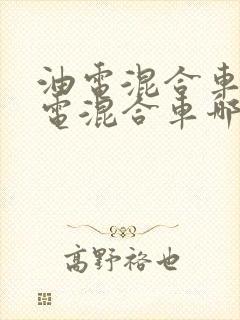 油電混合車
電混合車那
高野裕也